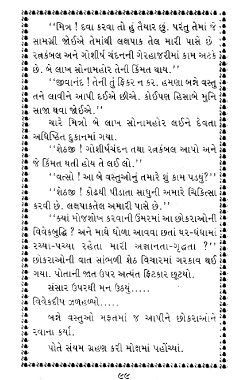 "મિત્ર ! દવા કરવા તો હું તૈયાર છું. પરંતુ તેમાં જે
સામગ્રી જોઈએ તેમાંથી લક્ષપાક તેલ મારી પાસે છે
રત્નકંબલ અને ગોશીર્ષ ચંદનની ગેરહાજરીમાં કામ અટકે
છે. બે લાખ સોનામહોર તેની કિંમત થાય."
"જીવાનંદ ! તેની તું ફિકર ન કર. હમણાં બન્ને વસ્તુ
તને લાવીને આપી દઈએ છીએ. કોઈપણ હિસાબે મુનિ
સાજા થવા જોઈએ."
ચારે મિત્રો બે લાખ સોનામહોર લઈને દેવતા
અધિષ્ઠિત દુકાનમાં ગયા.
"શેઠજી ! ગોશીર્ષચંદન તથા રત્નકંબલ આપો અને
જે કિંમત થતી હોય તે લઈ લો."
"વત્સો ! આ બે વસ્તુઓનું તમારે શું કામ પડયું?"
"શેઠજી ! કોઢથી પીડાતા સાધુની અમારે ચિકિત્સા
કરવી છે. લક્ષપાકતેલ અમારી પાસે છે."
"ક્યાં મોજશોખ કરવાની ઉંમરમાં આ છોકરાઓની
વિવેકબુદ્ધિ ? અને માથે ધોળા આવવા છતાં ઘર-ધંધામાં
રચ્યા-પચ્યા રહેતા મારી અજ્ઞાનતા-ગૃદ્ધતા ?"
છોકરાઓની વાત સાંભળી શેઠ વિચારમાં ગરકાવ થઈ
ગયા. પોતાની જાત ઉપર અત્યંત ફિટકાર છૂટયો.
સંસાર ઉપરથી મન ઉઠયું.....
વિવેકદીપ ઝળહળ્યો.....
બન્ને વસ્તુઓ મફતમાં જ આપીને છોકરાઓને
રવાના કર્યા.
પોતે સંયમ ગ્રહણ કરી મોક્ષમાં પહોંચ્યાં.
૯૯